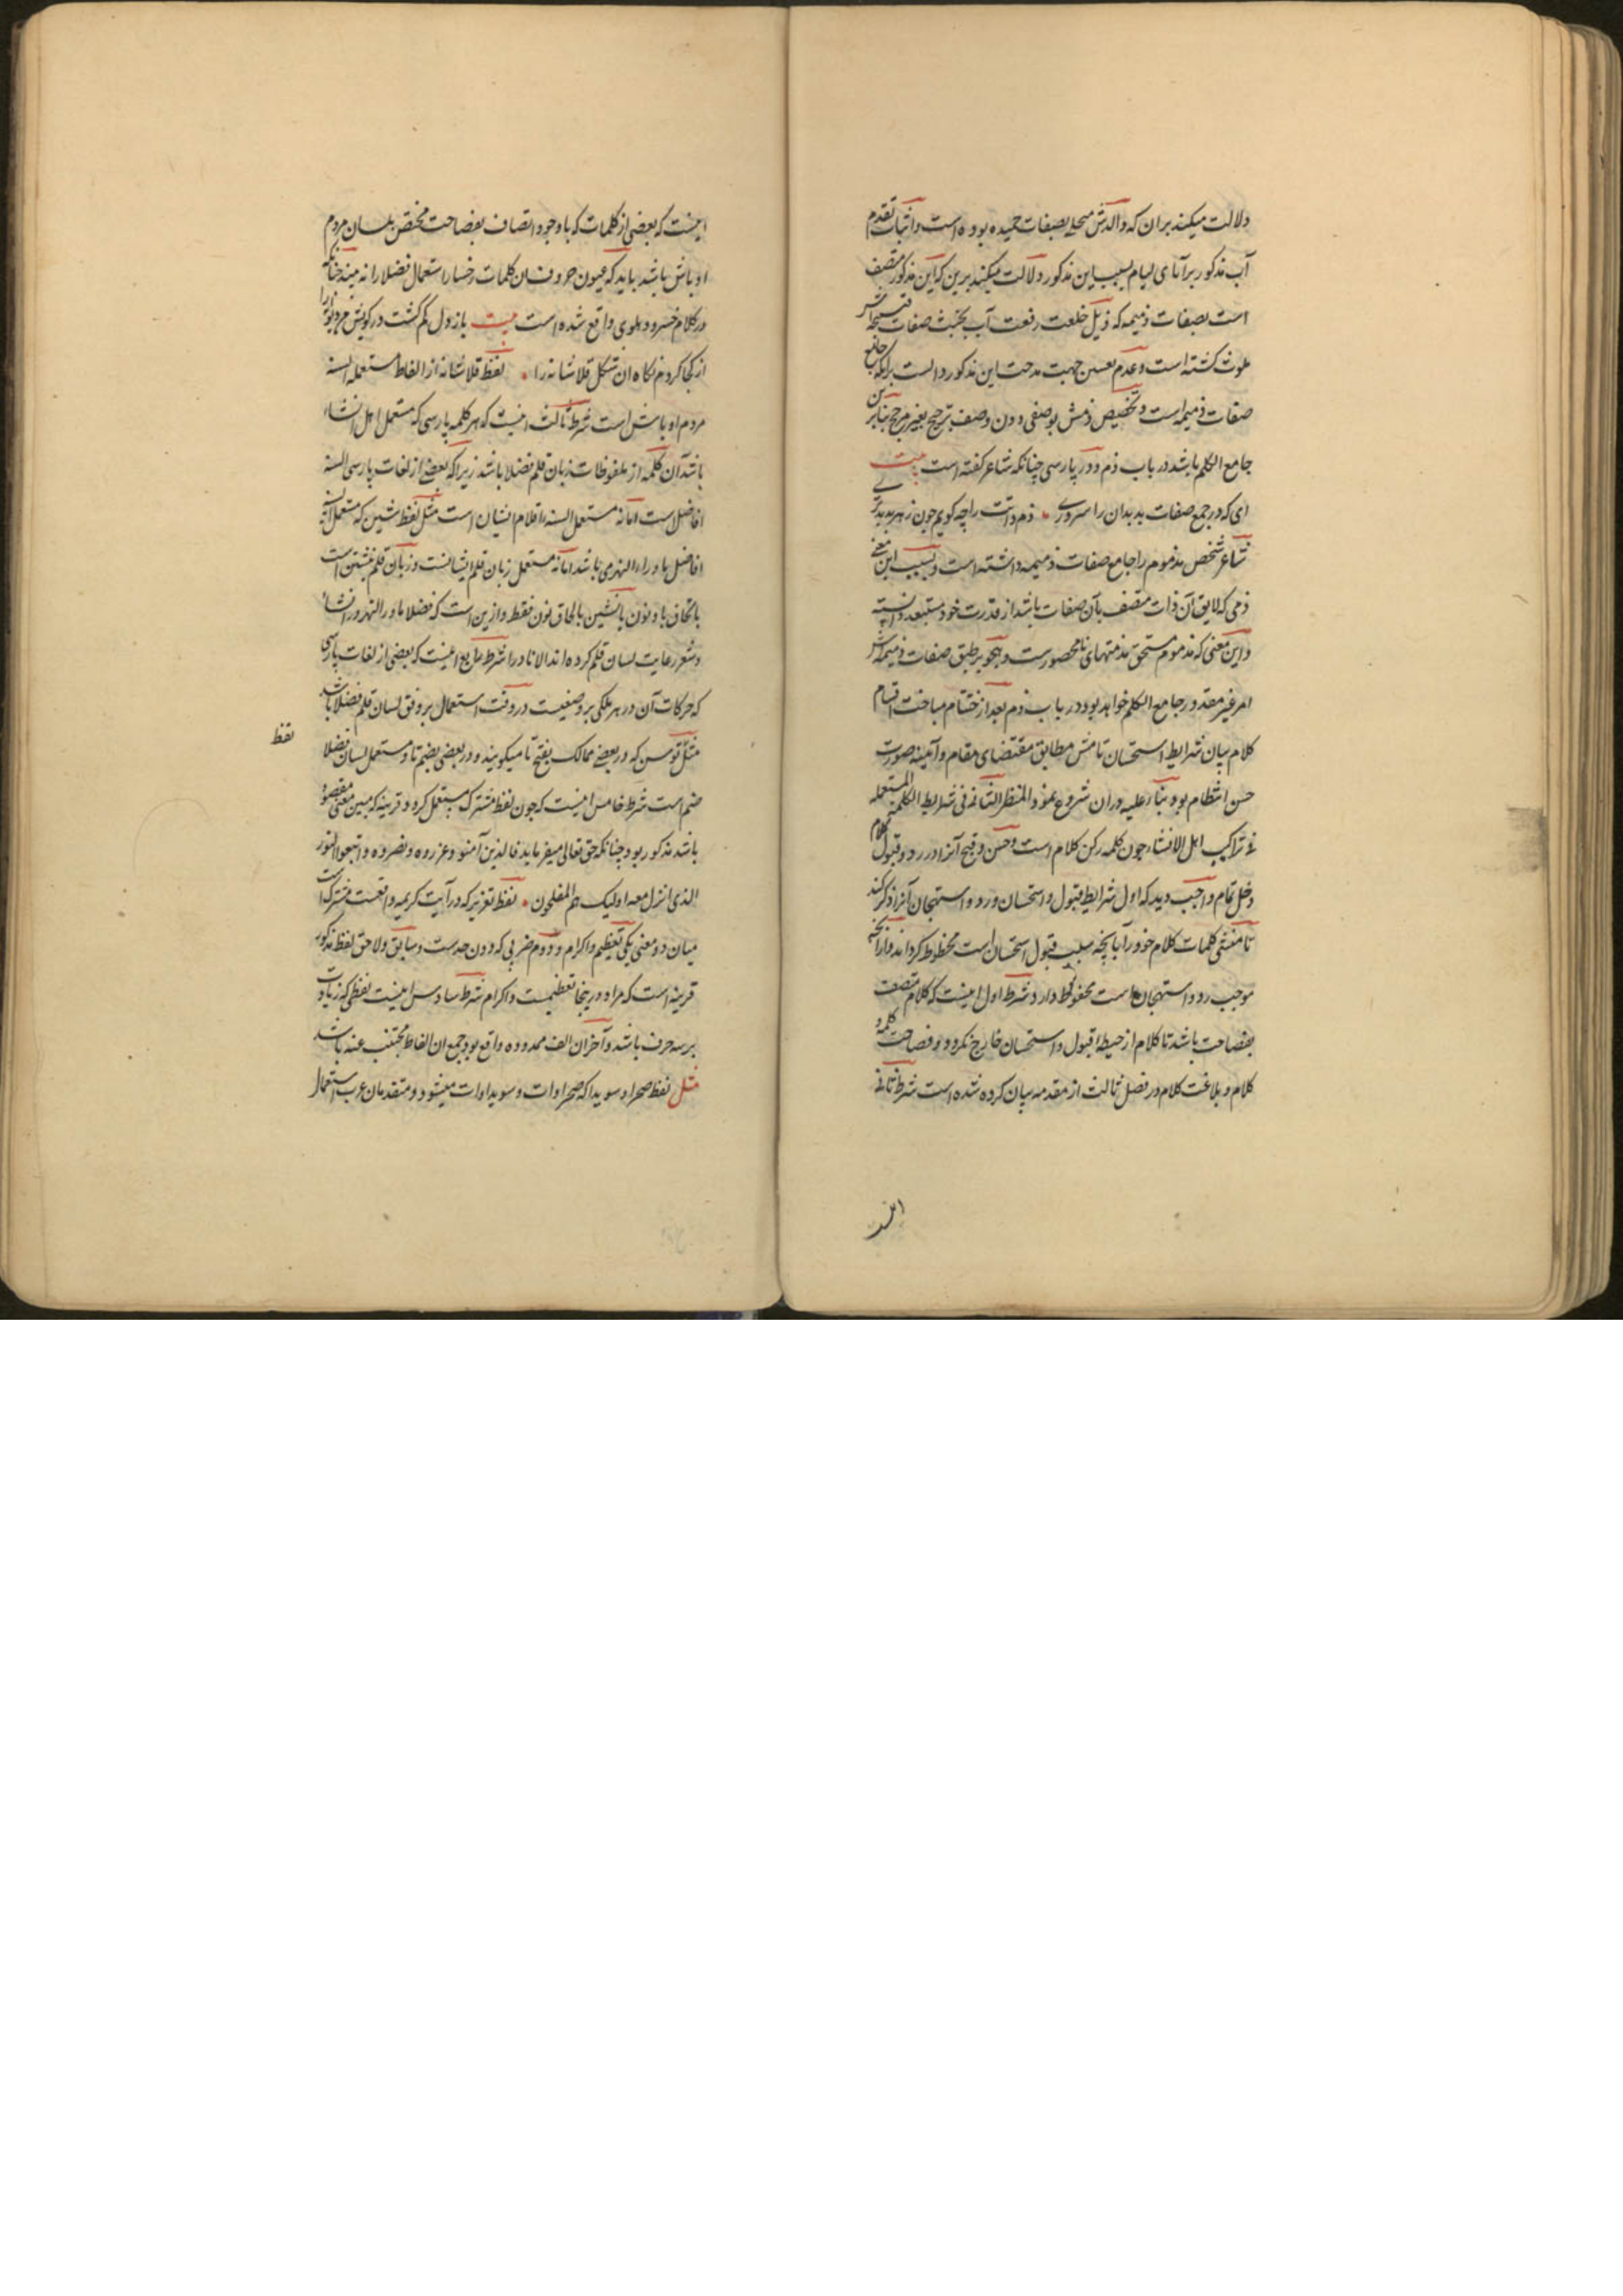 دلالت میکند بران که والدش محلی بصفات حمیده بوده است و اثبات تقدم
آب مذکور بر آنای لیام بسبب این مذکور دلالت میکند برین که این مذکور متصف
است بصفات ذمیمه که ذیل خلعت رفعت آب بخبث صفات
ملوث کشته است و عدم تعین جهت مدحت این مذکور دالست برانکه جامع
صفات ذمیمه است و تخصیص ذمش بوصفی دون وصف ترجیح بغیر مرجح بنابرین
جامع الکلم باشد در باب ذم و در پارسی چنانکه شاعر کفته است بیت
ای که در جمع صفات بد بدان را سروری ذم ذاتت را چه کویم چون ز هر بد بدتری
شاعر شخص مذموم را جامع صفات ذمیمه دانسته است و بسبب این معنی
ذمی که لایق آن ذات متصف بآن صفات باشد از قدرت خود مستبعد دانسته
و این معنی که مذموم مستحق مذمتهای نامحصورست و هجو بر طبق صفات ذمیمه اش
امر غیر مقدور جامع الکلم خواهد بود در باب ذم بعد از ختتام مباحث اقسام
کلام بیان شرایط استحسان تامش مطابق مقتضای مقام و آیینه صورت
حسن انتظام بود بناء علیه دران شروع نمود المنظر الثانی فی شرایط الکلمه المستعمله
فی تراکیب اهل الانشاء چون کلمه رکن کلام است و حسن و قبح آنرا در رد و قبول کلام
دخل تمام واجب دید که اول شرایط قبول و استحسان و رد و استهجان آنرا ذکر کند
تا منشی کلمات کلام خود را بانچه سبب قبول استحسان است محظوظ کرداند و از آنچه
موجب رد و استهجان است محفوظ دارد شرط اول اینست که کلام متصف
بفصاحت باشد تا کلام از حیطه قبول و استحسان خارج نکردد و فصاحت کلمه و
کلام و بلاغت کلام در فصل ثالث از مقدمه بیان کرده شده است شرط ثانی
اینست که بعضی از کلمات که با وجود اتصاف بفصاحت مختص بلسان مردم
اوباش باشد باید که عیون حروف ان کلمات رخسار استعمال فضلا را نه بیند چنانکه
در کلام خسرو دهلوی واقع شده است بیت باز دل کم کشت در کویش من دیوانه را
از کجا کردم نکاه ان شکل قلاشانه را لفظ قلاشانه از الفاظ مستعمله السنه
مردم اوباش است شرط ثالث اینست که هر کلمه پارسی که مستعمل اهل انشاء
باشد آن کلمه از ملفوظات زبان قلم فضلا باشد زیرا که بعضی از لغات پارسی السنه
افاضل است اما نه مستعمل السنه اقلام ایشان است مثل لفظ شین که مستعمل السنه
افاضل ماوراء النهر می باشد اما نه مستعمل زبان قلم ایشانست و زبان قلم نشین است
بالحاق با و نون یا نشین بالحاق نون فقط و ازین است که فضلاء ماورالنهر در انشاء
و شعر رعایت لسان قلم کرده اند الا نادرا شرط رابع اینست که بعضی از لغات پارسی
که حرکات آن در هر ملکی بر وضعیست در وقت استعمال بر وفق لسان قلم فضلا باشد
مثل توسن که در بعضی ممالک بفتح تا میکویند و در بعضی بضم تا و مستعمل لسان فضلا
ضم است شرط خامس اینست که چون لفظ مشترک مستعمل کردد قرینه که مبین معنی مقصود
باشد مذکور بود چنانکه حق تعالی میفرماید فالذین آمنو و عزروه و نصروه و اتبعوا النور
الذی انزل معه اولیک هم المفلحون لفظ تعزیر که در آیت کریمه واقعست مشترک است
میان دو معنی یکی تعظیم و اکرام و دوم ضربی که دون حدست و سابق و لاحق لفظ مذکور
قرینه است که مراد درینجا تعظیمست و اکرام شرط سادس اینست لفظی که زیادت
بر سه حرف باشد و آخر ان الف ممدوده واقع بود جمع ان الفاظ مجتنب عنه باشد
مثل لفظ صحرا و سویدا که صحراوات و سویداوات میشود و متقدمان عرب استعمال
لفظ